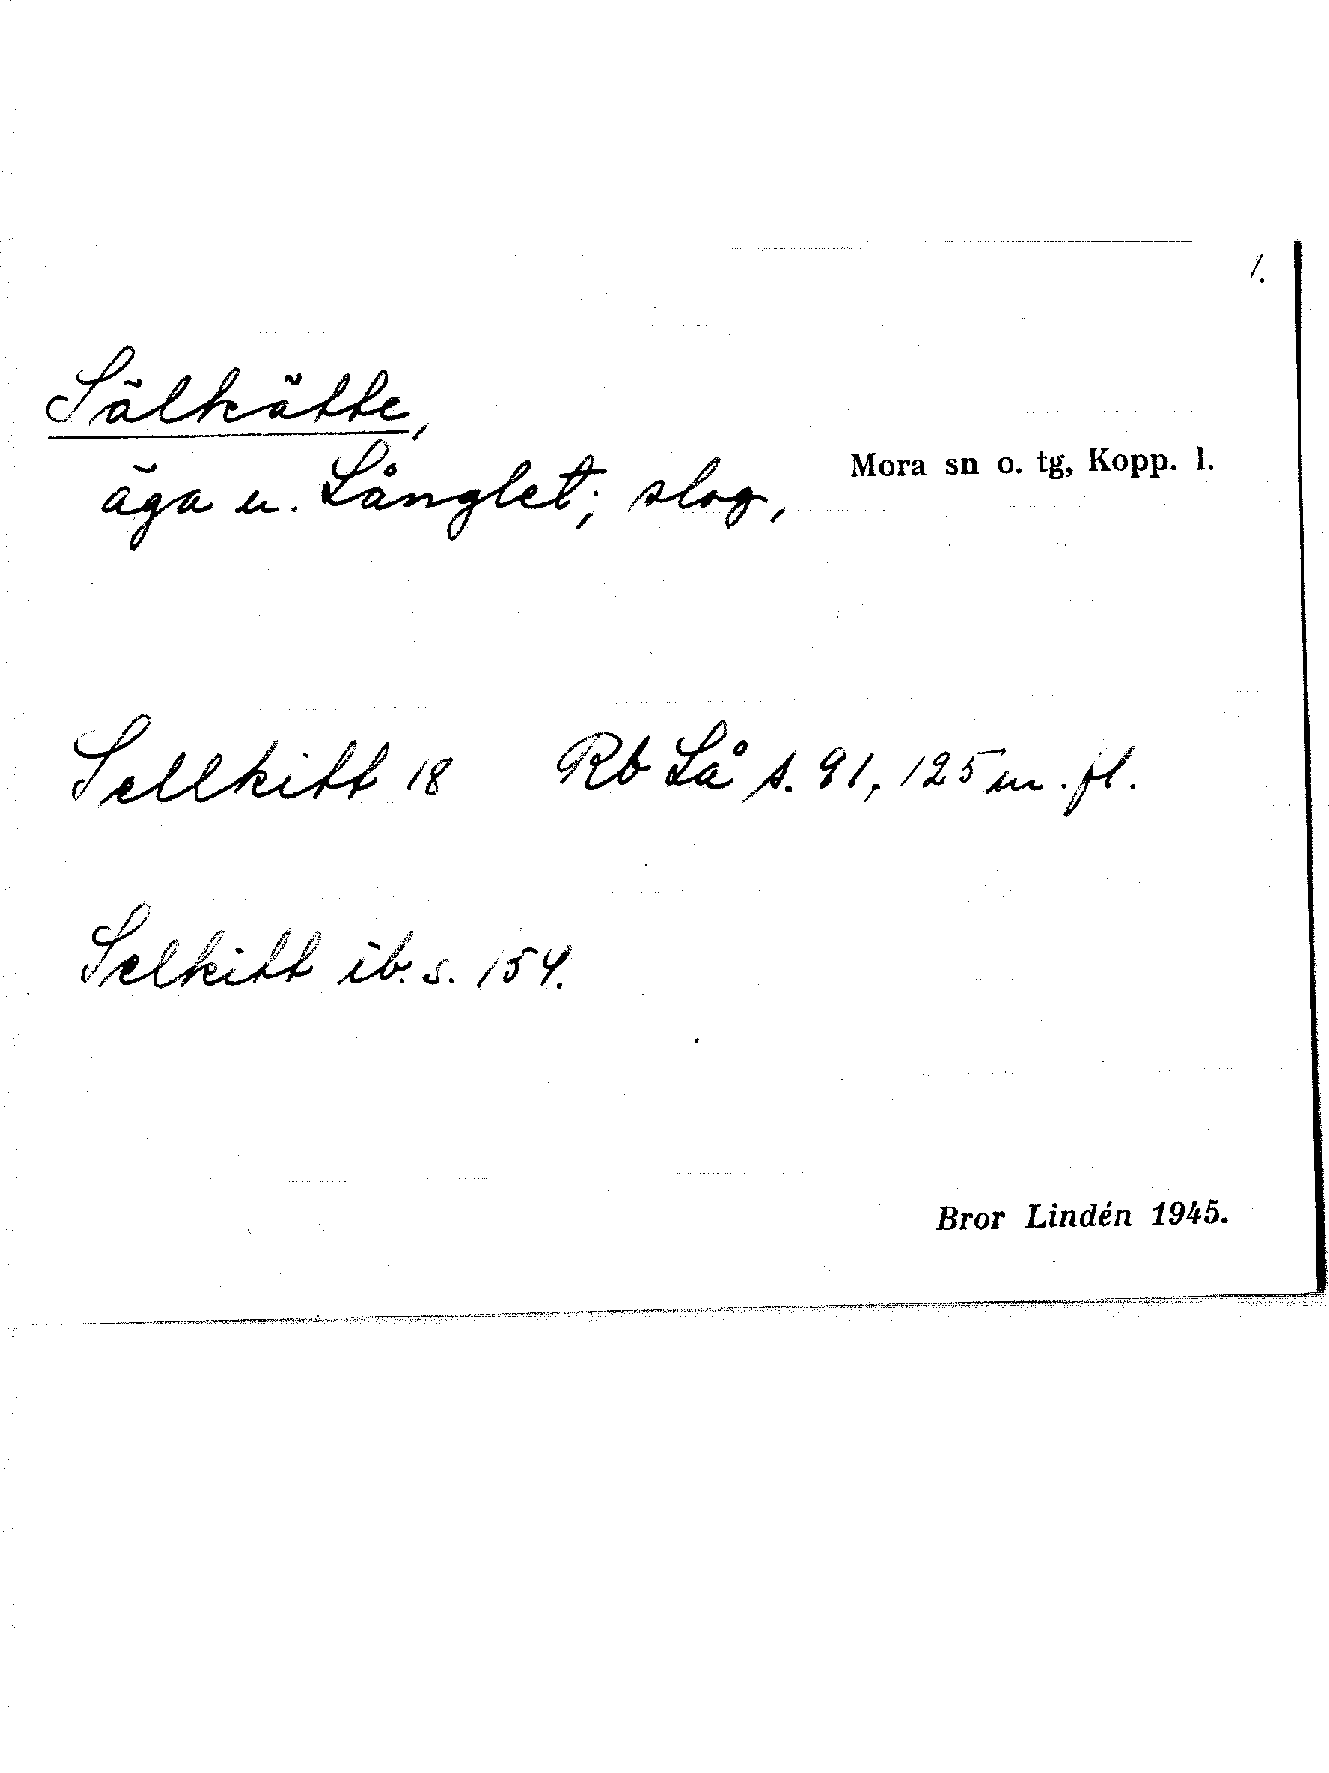 1.
Sälkätte,
äga u. Långlet; slog,
Mora sn o. tg, Kopp. l.
Sellkitt 18 Rb Lå s. 91, 125 m. fl.
Selkitt ib. s. 154.
Bror Lindén 1945.